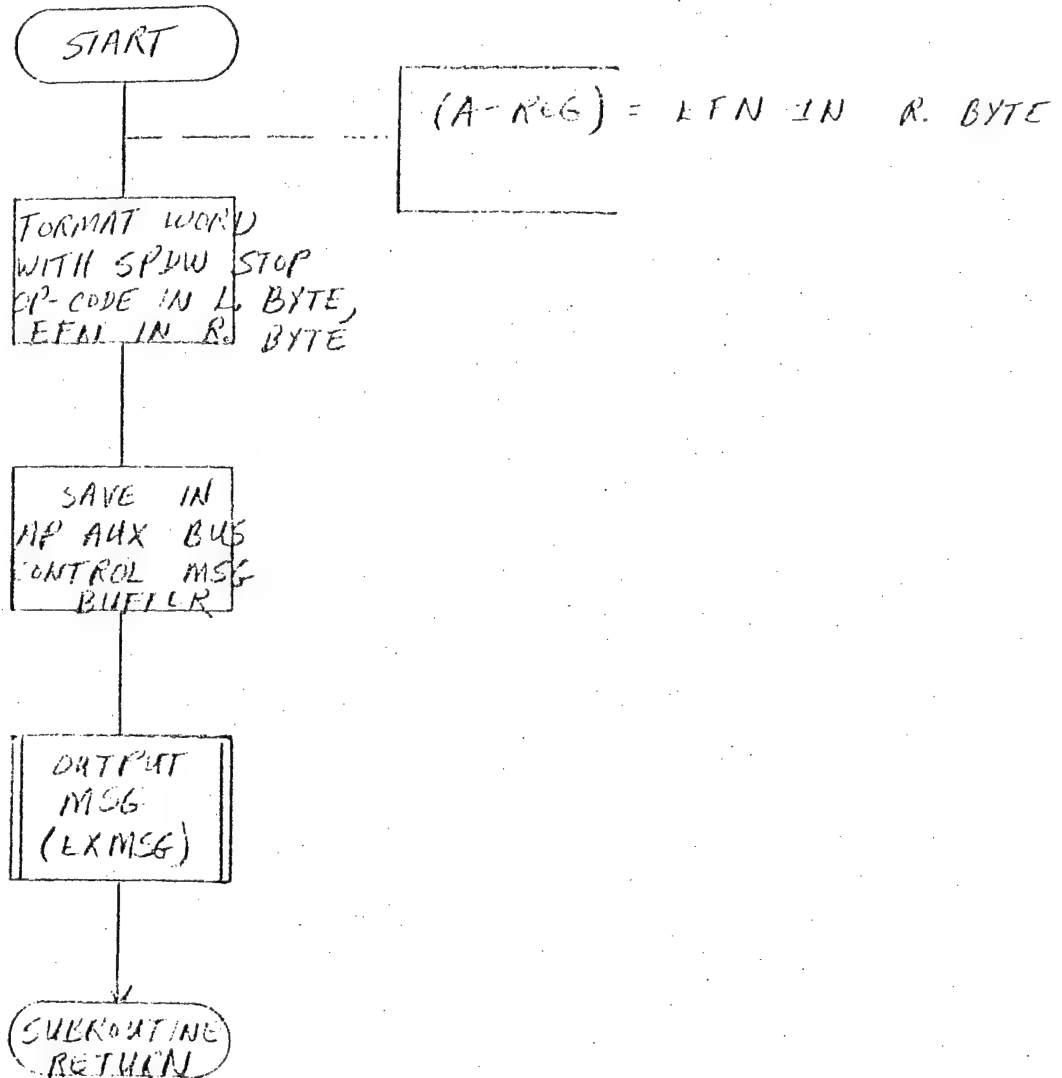 START
(A-REG) = EFN IN R. BYTE
FORMAT WORD
WITH SPDW STOP
OP-CODE IN L. BYTE,
EFN IN R. BYTE
SAVE IN
MP AUX BUS
CONTROL MSG
BUFFER
OUTPUT
MSG
(EXMSG)
SUBROUTINE
RETURN